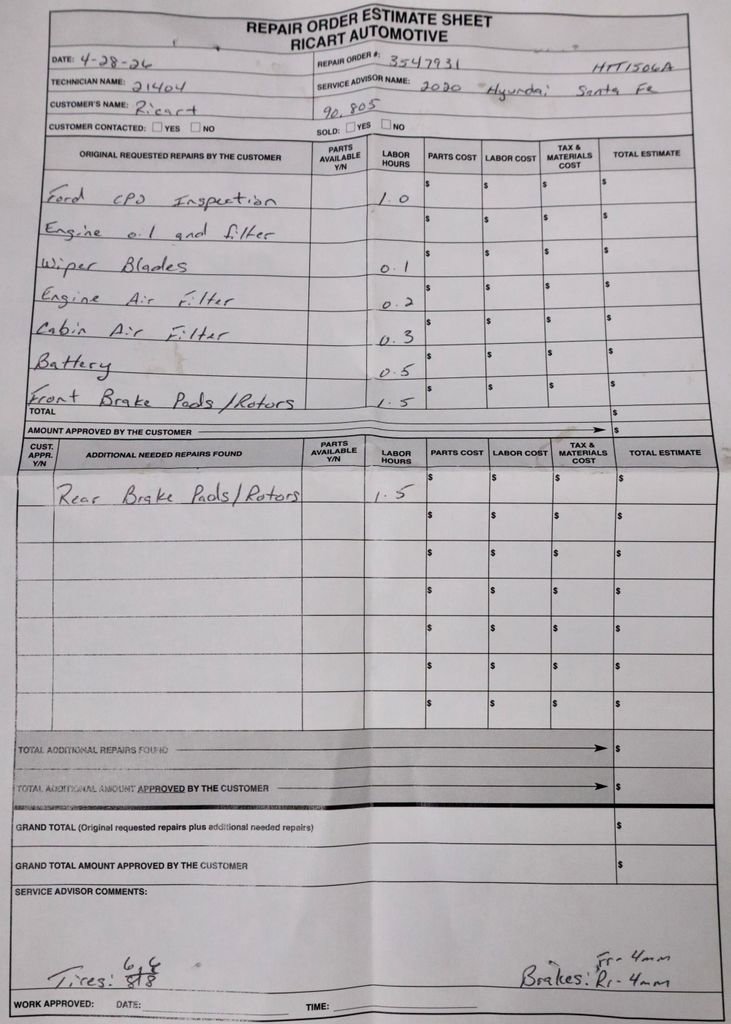 REPAIR ORDER ESTIMATE SHEET
RICART AUTOMOTIVE
DATE: 4-28-26 REPAIR ORDER #: 3547931 HTT1506A
TECHNICIAN NAME: 21404 SERVICE ADVISOR NAME: 2020 Hyundai Santa Fe
CUSTOMER'S NAME: Ricart 90,805
CUSTOMER CONTACTED: YES NO SOLD: YES NO
ORIGINAL REQUESTED REPAIRS BY THE CUSTOMER PARTS AVAILABLE Y/N LABOR HOURS PARTS COST LABOR COST TAX & MATERIALS COST TOTAL ESTIMATE
Ford CPO Inspection 1.0 $ $ $ $
Engine oil and filter $ $ $ $
Wiper Blades 0.1 $ $ $ $
Engine Air Filter 0.2 $ $ $ $
Cabin Air Filter 0.3 $ $ $ $
Battery 0.5 $ $ $ $
Front Brake Pads/Rotors 1.5 $ $ $ $
TOTAL $
AMOUNT APPROVED BY THE CUSTOMER $
CUST. APPR. Y/N ADDITIONAL NEEDED REPAIRS FOUND PARTS AVAILABLE Y/N LABOR HOURS PARTS COST LABOR COST TAX & MATERIALS COST TOTAL ESTIMATE
Rear Brake Pads/Rotors 1.5 $ $ $ $
$ $ $ $
$ $ $ $
$ $ $ $
$ $ $ $
$ $ $ $
$ $ $ $
TOTAL ADDITIONAL REPAIRS FOUND $
TOTAL ADDITIONAL AMOUNT APPROVED BY THE CUSTOMER $
GRAND TOTAL (Original requested repairs plus additional needed repairs) $
GRAND TOTAL AMOUNT APPROVED BY THE CUSTOMER $
SERVICE ADVISOR COMMENTS:
Tires: 6,6 8/8 Brakes: Fr- 4mm
Rr- 4mm
WORK APPROVED: DATE: TIME: